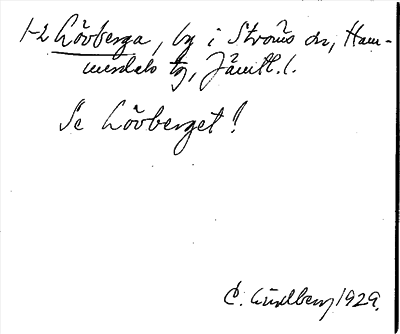 1-2 Lövberga, by i Ströms sn, Ham-
merdals tg, Jämtl. l.
Se Lövberget!
C. Lindberg 1929.